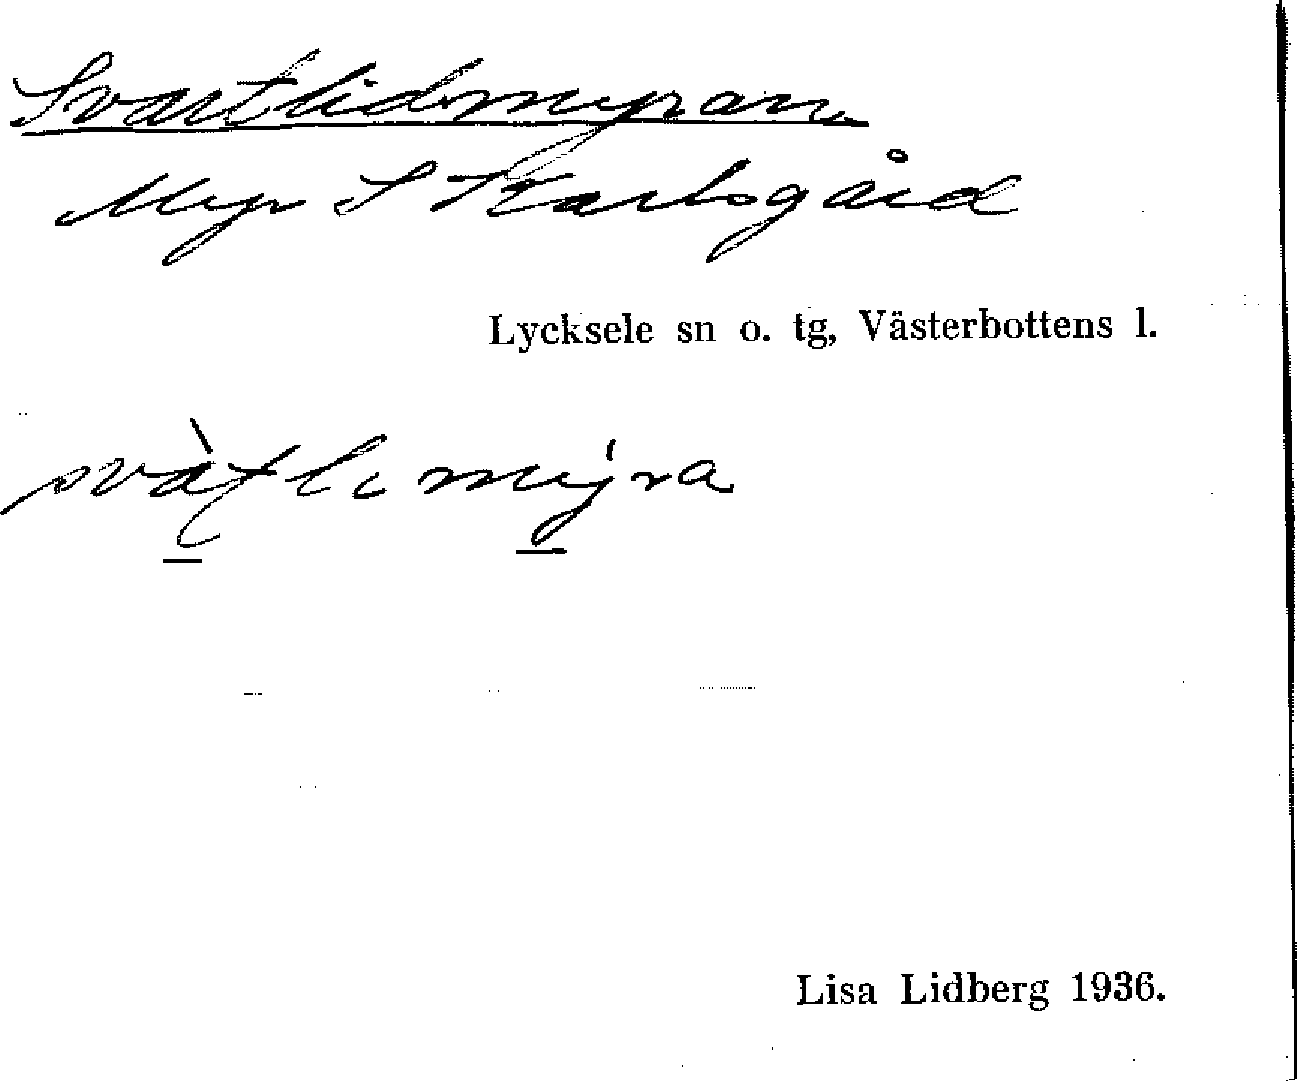 Svartlidmyran
Myr S Karlsgård
Lycksele sn o. tg, Västerbottens l.
svàt li mýra
Lisa Lidberg 1936.